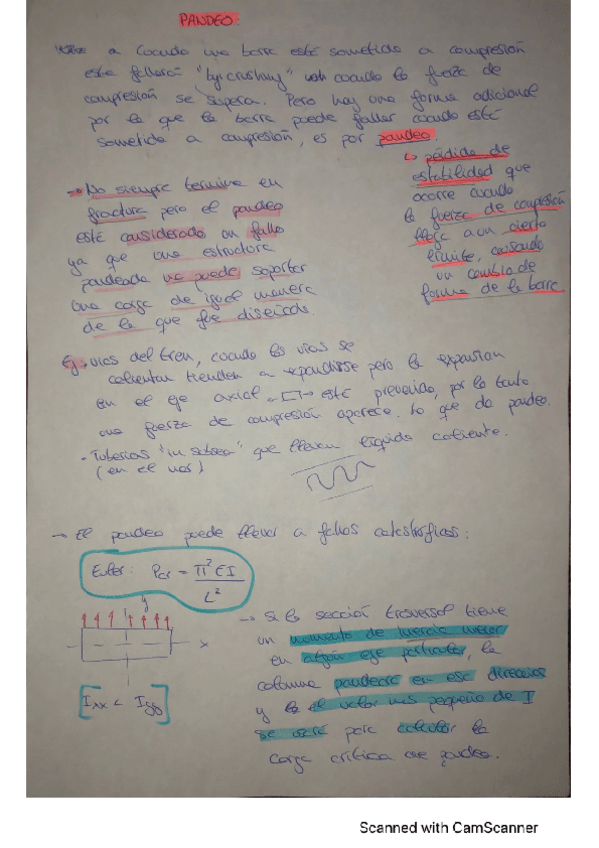 PANDEO:
a Cuando una barra esté sometida a compresión
esta fallará "by crushing" cuando la fuerza de
compresión se supera. Pero hay una forma adicional
por la que la barra puede fallar cuando esté
sometida a compresión, es por pandeo.
↳ pérdida de
estabilidad que
ocurre cuando
la fuerza de compresión
llega a un cierto
límite, causando
un cambio de
forma de la barra
→ No siempre termina en
fractura pero el pandeo
está considerado un fallo
ya que una estructura
pandeada no puede soportar
una carga de igual manera
de la que fue diseñada
Ej: vías del tren, cuando las vías se
calientan tienden a expandirse pero la expansion
en el eje axial está prevenida, por lo tanto
una fuerza de compresión aparece. lo que da pandeo.
- Tuberías "in subsea" que llevan líquido caliente.
(en el mar)
→ El pandeo puede llevar a fallos catastróficos:
Euler: Pcr = π²EI / L²
y
x
[Ixx < Iyy]
→ Si la sección trasversal tiene
un momento de inercia menor
en algún eje particular, la
columna pandeará en esa dirección
y el valor mas pequeño de I
se usará para calcular la
carga crítica de pandeo.
Scanned with CamScanner